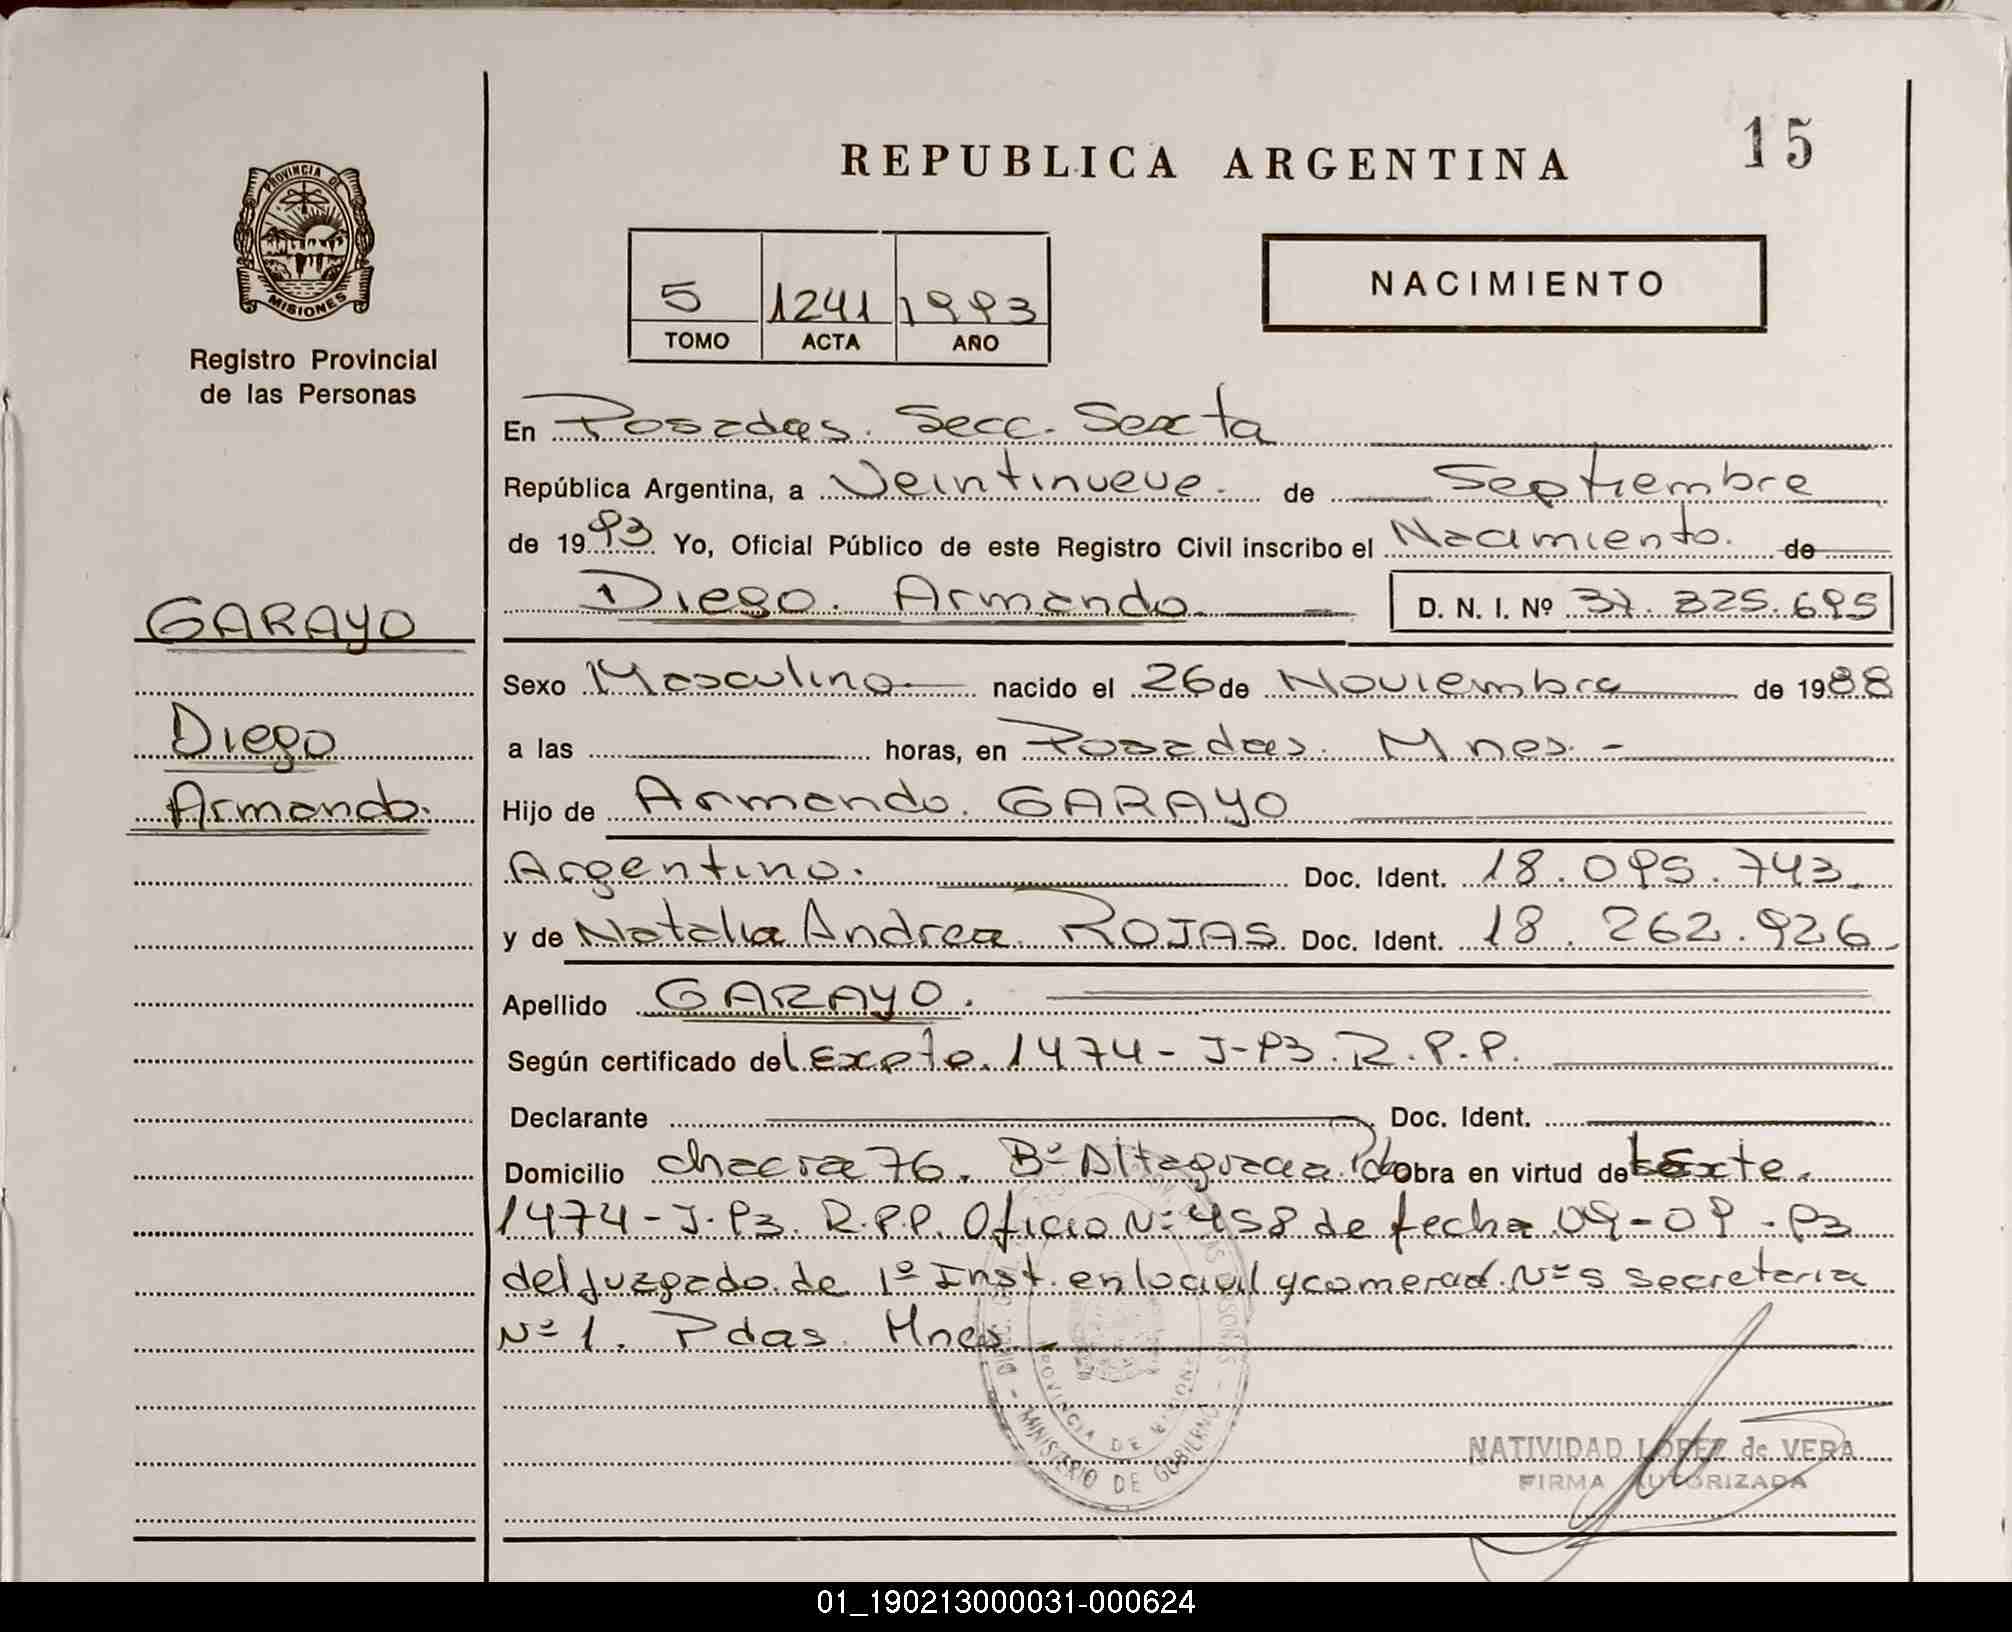 15
REPUBLICA ARGENTINA
PROVINCIA DE
MISIONES
Registro Provincial
de las Personas
5 1241 1993
TOMO ACTA AÑO
NACIMIENTO
En Posadas. Secc. Sexta
República Argentina, a Veintinueve. de Septiembre
de 1993 Yo, Oficial Público de este Registro Civil inscribo el Nacimiento. de
Diego. Armando D. N. I. Nº 37. 325. 695
GARAYO
Sexo Masculino nacido el 26 de Noviembre de 1988
Diego
a las horas, en Posadas. Mnes. -
Armando.
Hijo de Armando. GARAYO
Argentino. Doc. Ident. 18. 095. 743.
y de Natalia Andrea ROJAS Doc. Ident. 18. 262. 926
Apellido GARAYO.
Según certificado del Expte. 1474 - J-93. R. P. P.
Declarante Doc. Ident.
Domicilio chacra 76. Bº Altagracia. Pdas Obra en virtud de Exte.
1474 - J. 93. R.P.P. Oficio Nº 458 de fecha 09-09-93
del juzgado de 1º Inst. en lo civil y comercial Nº 5 secretaria
Nº 1. Pdas. Mnes.
MINISTERIO DE GOBIERNO
PROVINCIA DE MISIONES
NATIVIDAD LOPEZ de VERA
FIRMA AUTORIZADA
01_190213000031-000624